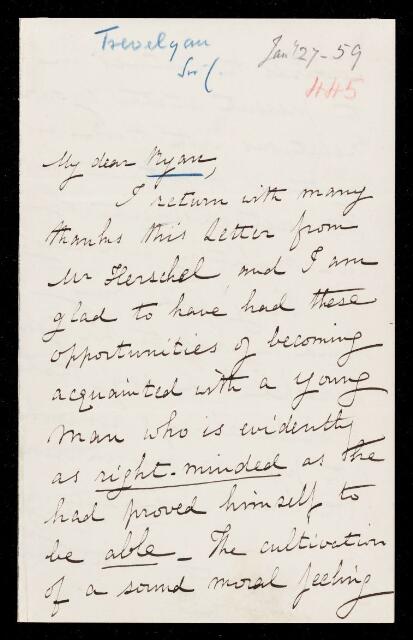 Trevelyan
Sir C.
Jany 27-59
445
My dear Ryan,
I return with many
thanks this Letter from
Mr Herschel and I am
glad to have had these
opportunities of becoming
acquainted with a young
man who is evidently
as right-minded as he
had proved himself to
be able _ The cultivation
of a sound moral feeling